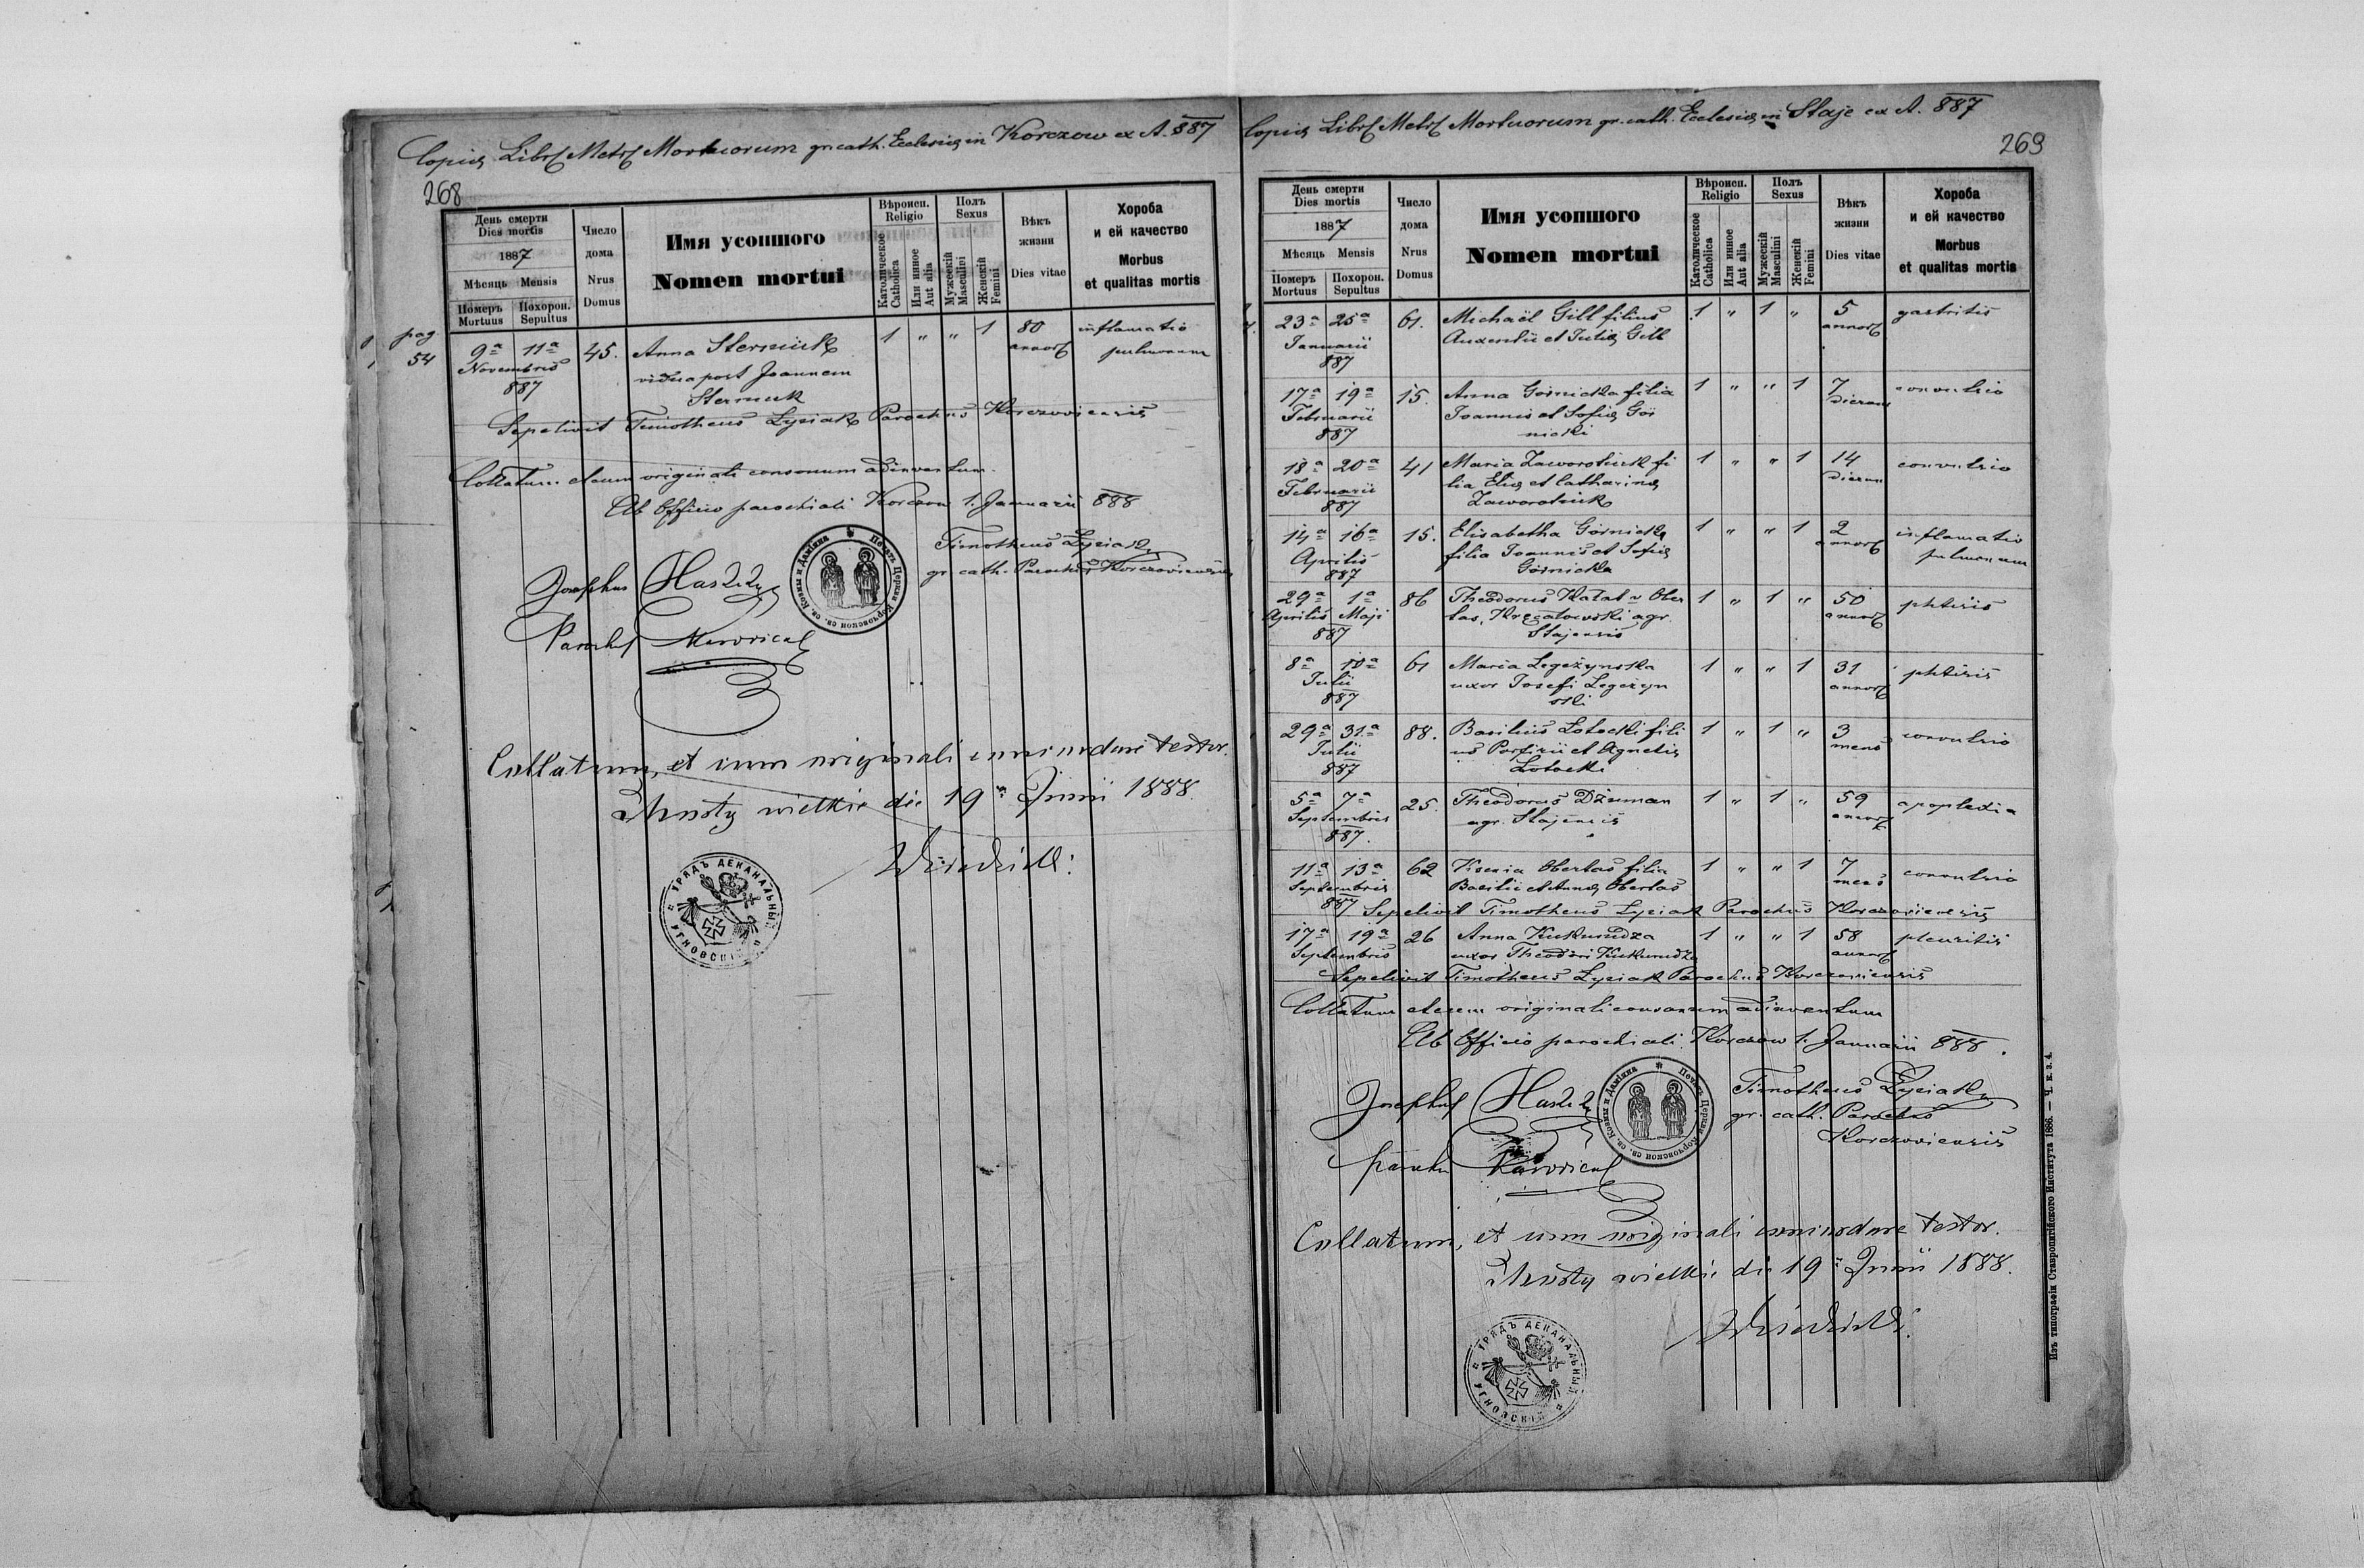 Copia Libri Metr. Mortuorum gr. cath. Ecclesiæ in Korczow ex A. 887
268
День смерти
Dies mortis
1887
Мѣсяць Mensis
Померъ Похорон.
Mortuus Sepultus
Число
дома
Nrus
Domus
Имя усопшого
Nomen mortui
Вѣроисп.
Religio
Католическое
Catholica
Или инное
Aut alia
Полъ
Sexus
Мужескій
Masculini
Женскій
Femini
Вѣкъ
жизни
Dies vitae
Хороба
и ей качество
Morbus
et qualitas mortis
pag.
54
9ª 11ª 45. Anna Sterniuk 1 " " 1 80 inflamatio
Novembris vidua post Joannem annor. pulmonum
887 Sterniuk
Sepelivit Timotheus Łysiak Parochus Korczoviensis
Collatum et cum originali consonum adinventum.
Ab Officio parochiali Korczow 1. Januarii 888
Timotheus Łysiak
gr. cath. Parochus Korczoviensis
Josephus
Печать Церкви Корчовской св. Козмы и Даміяна
Collatum, et cum originali concordare testor.
Mosty wielkie die 19ª Junii 1888.
УРЯДЪ ДЕКАНАЛЬНЫЙ УГНОВСКІЙ
Copia Libri Metr. Mortuorum gr. cath. Ecclesiæ in Staje ex A. 887
269
День смерти
Dies mortis
1887
Мѣсяць Mensis
Померъ Похорон.
Mortuus Sepultus
Число
дома
Nrus
Domus
Имя усопшого
Nomen mortui
Вѣроисп.
Religio
Католическое
Catholica
Или инное
Aut alia
Полъ
Sexus
Мужескій
Masculini
Женскій
Femini
Вѣкъ
жизни
Dies vitae
Хороба
и ей качество
Morbus
et qualitas mortis
23ª 25ª 61. Michaël Gill filius 1 " 1 " 5 gastritis
Januarii Auxentii et Juliæ Gill annor.
887
17ª 19ª 15. Anna Górnicka filia 1 " " 1 7 convulsio
Februarii Joannis et Sofiæ Gór dierum
887 nicki
18ª 20ª 41 Maria Zaworotiuk fi 1 " " 1 14 convulsio
Februarii lia Eliæ et Catharinæ dierum
887 Zaworotiuk
14ª 16ª 15. Elisabetha Górnicka 1 " " 1 2 inflamatio
Aprilis filia Joannis et Sofiæ annor. pulmonum
887 Górnicka
29ª 1ª 86 Theodorus Ober 1 " 1 " 50 phtisis
Aprilis Maji tas, agr. annor.
887 Stajensis
8ª 10ª 61 Maria Legeżynska 1 " " 1 31 phtisis
Julii uxor Josefi Legeżyn annor.
887 ski
29ª 31ª 88. Basilius Łotocki fili 1 " 1 " 3 convulsio
Julii us Porfirii et Agnetis mens
887 Łotocki
5ª 7ª 25. Theodorus Dżuman 1 " 1 " 59 apoplexia
Septembris agr. Stajensis annor.
887.
11ª 13ª 62 Ksenia Obertas filia 1 " " 1 7 convulsio
Septembris Basilii et Annæ Obertas mens
887 Sepelivit Timotheus Łysiak Parochus Korczoviensis
17ª 19ª 26 Anna Kukurudza 1 " " 1 58 pleuritis
Septembris uxor Theodori Kukurudza annor.
Sepelivit Timotheus Łysiak Parochus Korczoviensis
Collatum et cum originali consonum adinventum
Ab Officio parochiali Korczow 1. Januarii 888.
Timotheus Łysiak
gr. cath. Parochus
Korczoviensis
Josephus
Печать Церкви Корчовской св. Козмы и Даміяна
Collatum, et cum originali concordare testor.
Mosty wielkie die 19ª Junii 1888.
УРЯДЪ ДЕКАНАЛЬНЫЙ УГНОВСКІЙ
Изъ типографіи Ставропигійского Института 1886. — Ч. к. з. 4.